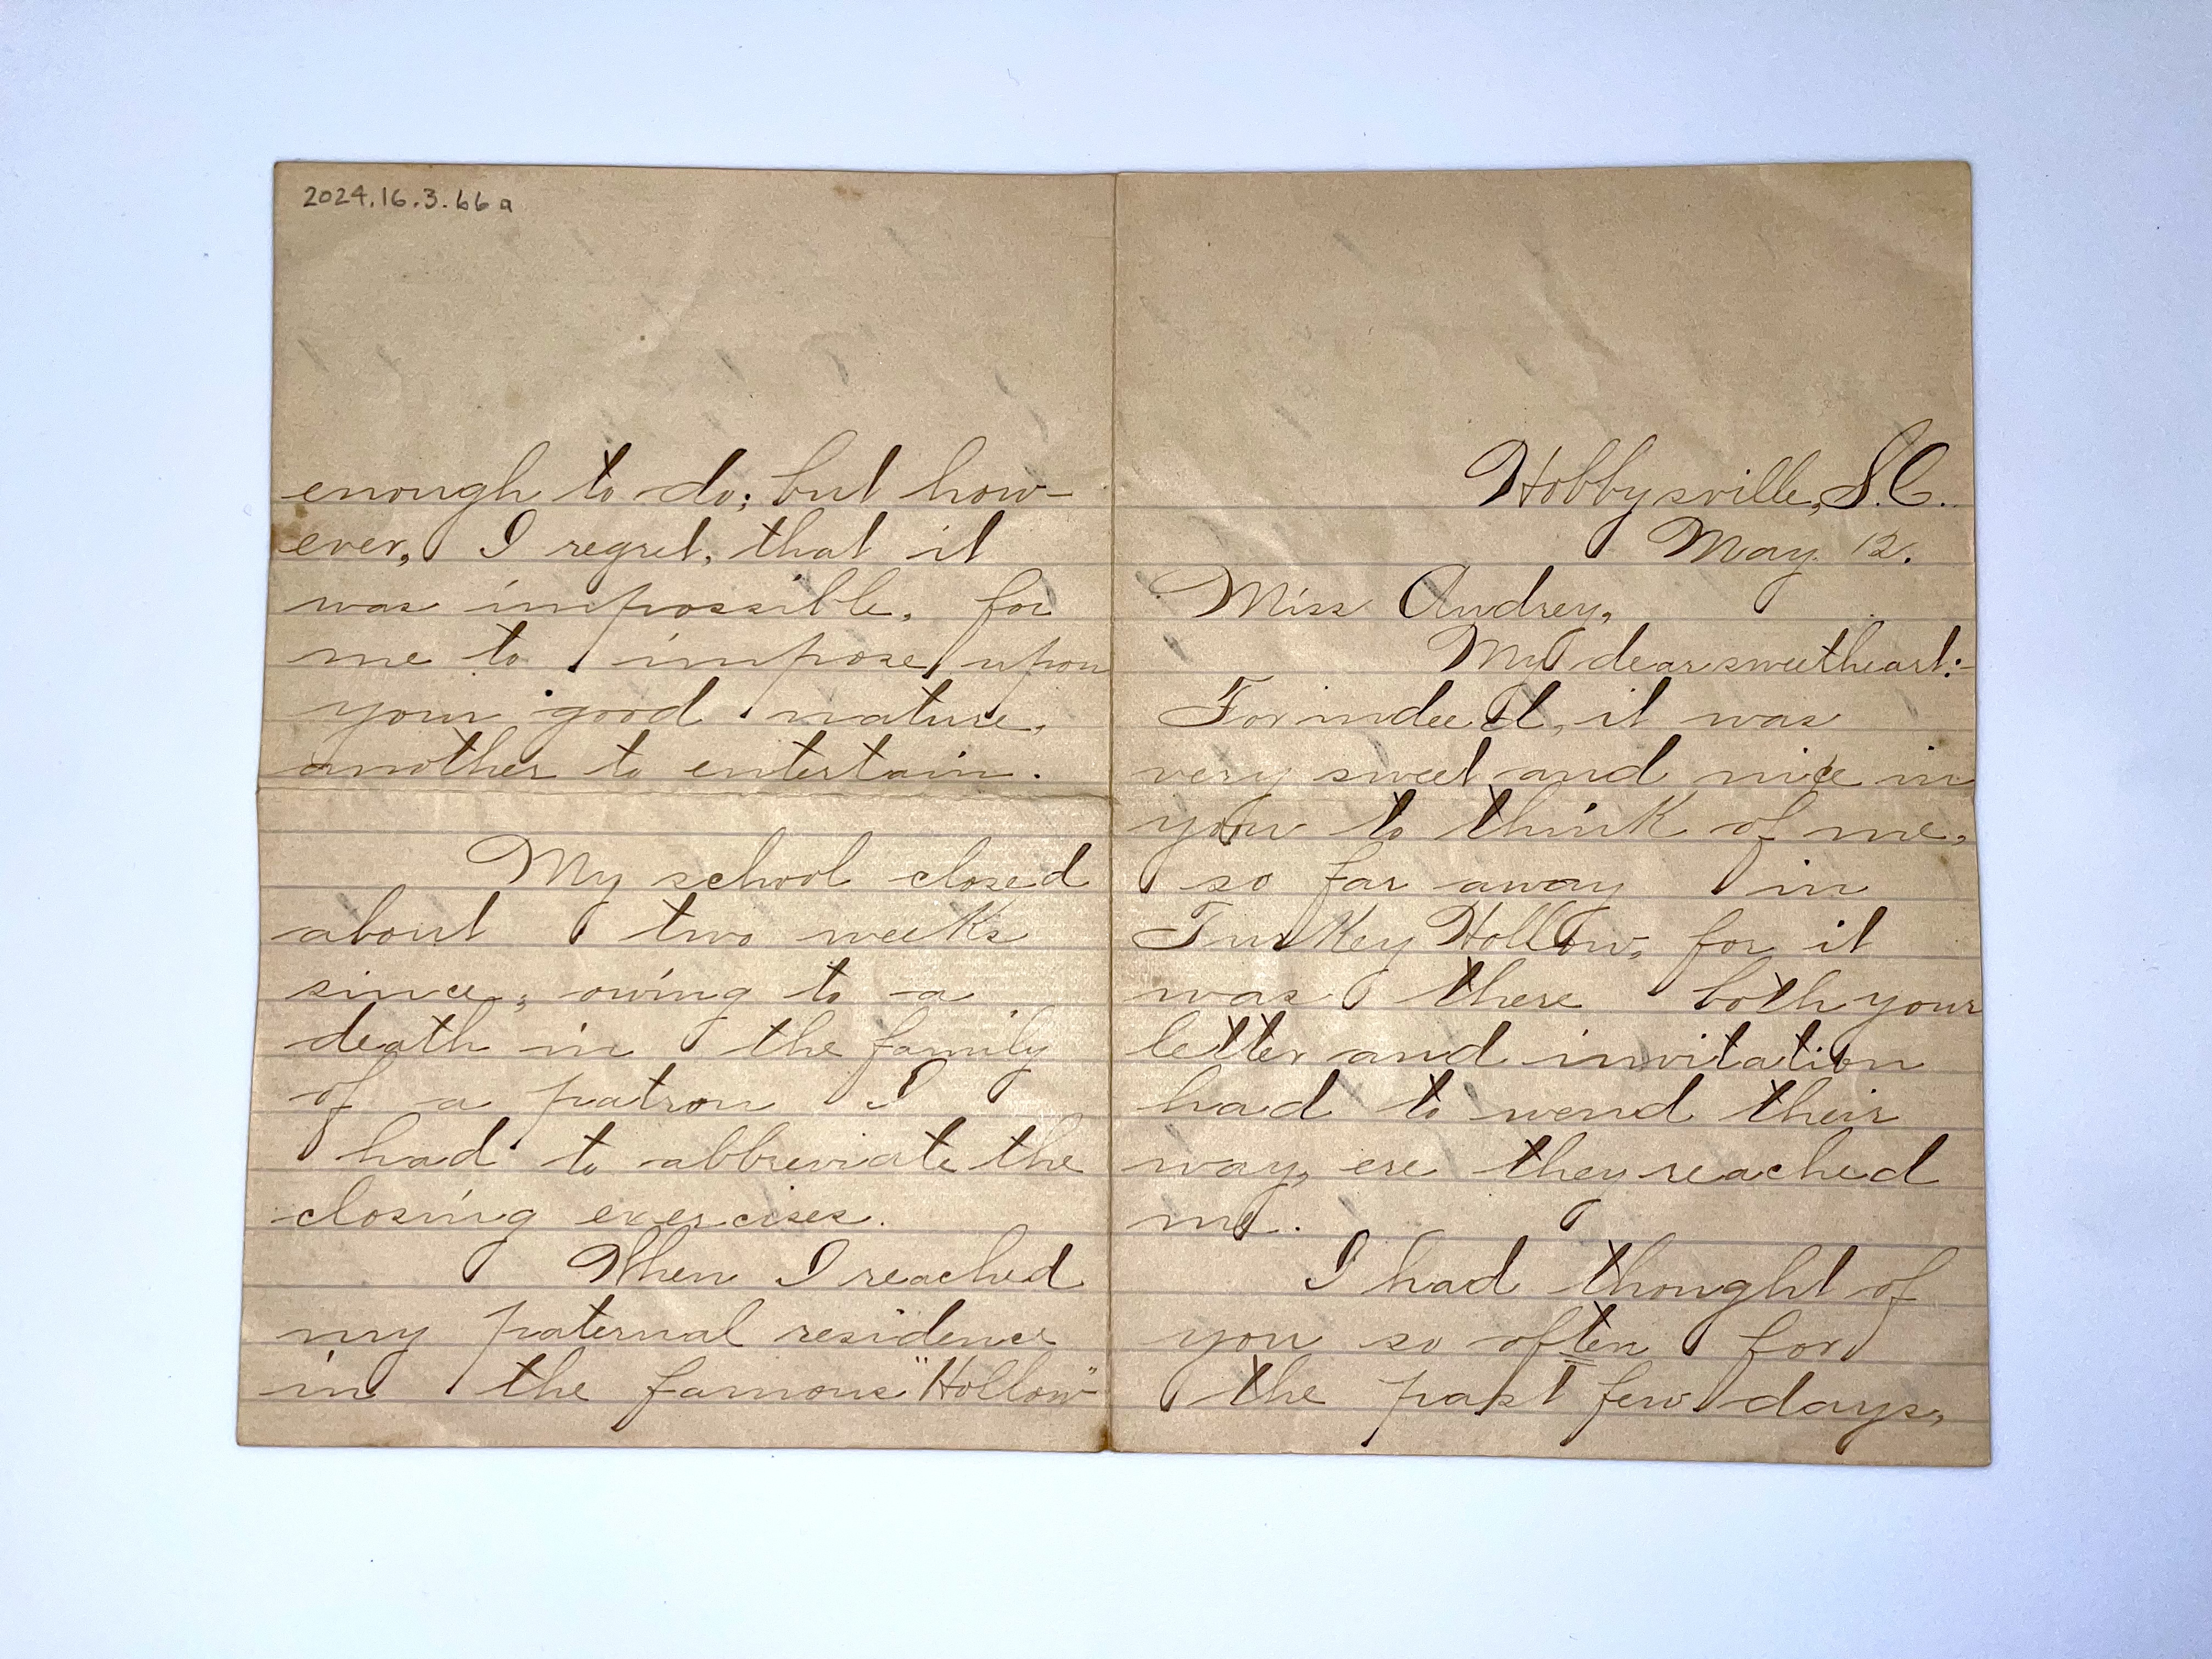 2024.16.3.66a
enough to do; but how-
ever, I regret, that it
was impossible, for
me to impose upon
your good nature,
another to entertain.
My school closed
about two weeks
since; owing to a
death in the family
of a patron I
had to abbreviate the
closing exercises.
When I reached
my paternal residence
in the famous "Hollow"
Hobbysville, S.C.
May 12.
Miss Audrey,
My dear sweetheart:-
For indeed, it was
very sweet and nice in
you to think of me,
so far away in
Turkey Hollow, for it
was there both your
letter and invitation
had to wend their
way, ere they reached
me.
I had thought of
you so often for
the past few days,